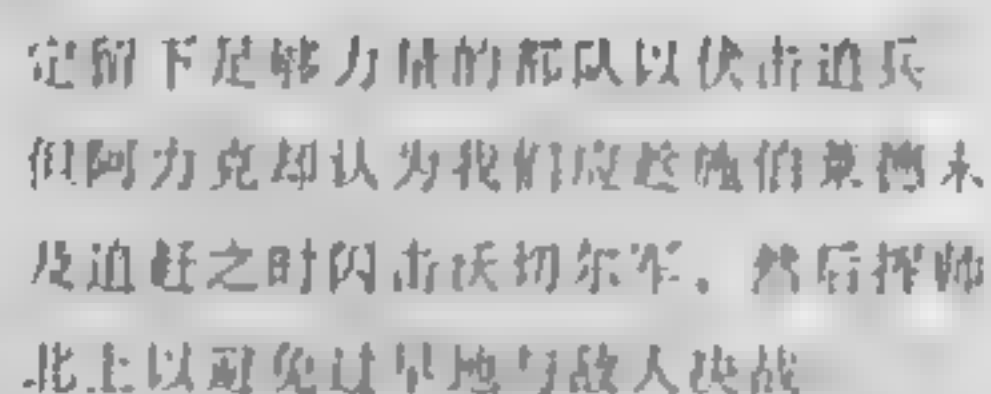 定留下足够力量的舰队以伏击追兵
但阿力克却认为我们应趁他们乘胜未
及追赶之时闪击沃切尔军。然后挥师
北上以避免过早地与敌人决战